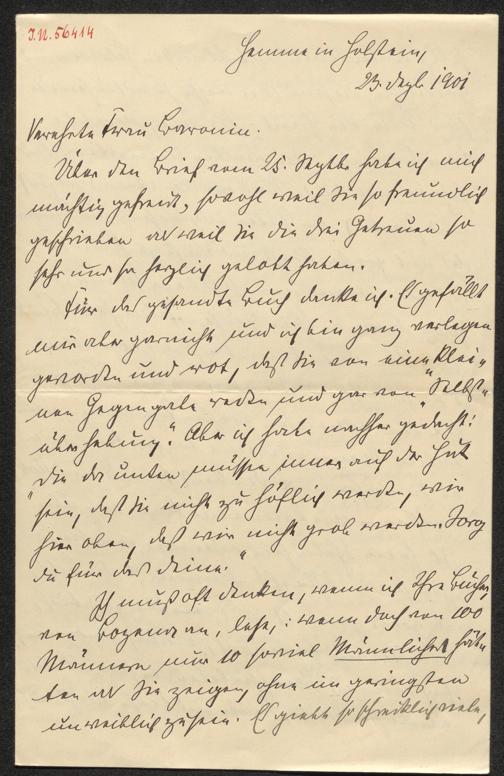 J.N. 56414
Hemme in Holstein,
23. Dezb. 1901
Verehrte Frau Baronin.
Über den Brief vom 25. Septbr habe ich mich
mächtig gefreut, sowohl weil Sie so freundlich
geschrieben als weil Sie die drei Getreuen so
sehr und so herzlich gelobt haben.
Für das gesandte Buch danke ich. Es gefällt
mir aber garnicht und ich bin ganz verlegen
geworden und rot, daß Sie von einer klei-
nen Gegengabe reden und gar von "Selbst-
überhebung". Aber ich habe nachher gedacht:
"die da unten müssen immer auf der Hut
sein, daß sie nicht zu höflich werden, wir
hier oben, daß wir nicht grob werden. Sorg
du für das deine."
Ich muß oft denken, wenn ich Ihre Bücher,
von Bozena an, lese,: wenn doch von 100
Männern nur 10 soviel Männliches hät-
ten als Sie zeigen, ohne im geringsten
unweiblich zu sein. Es giebt so schrecklich viele,